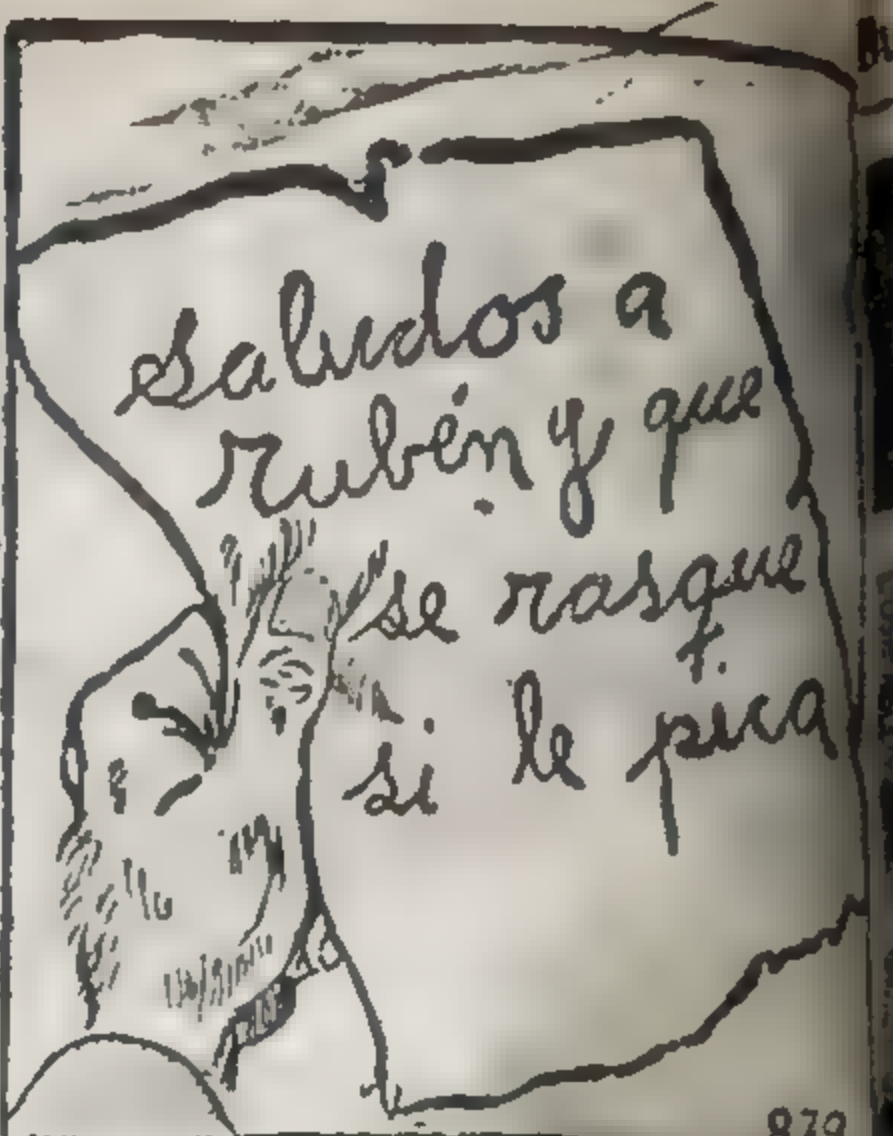 saludos a
rubén y que
se rasque
si le pica
879